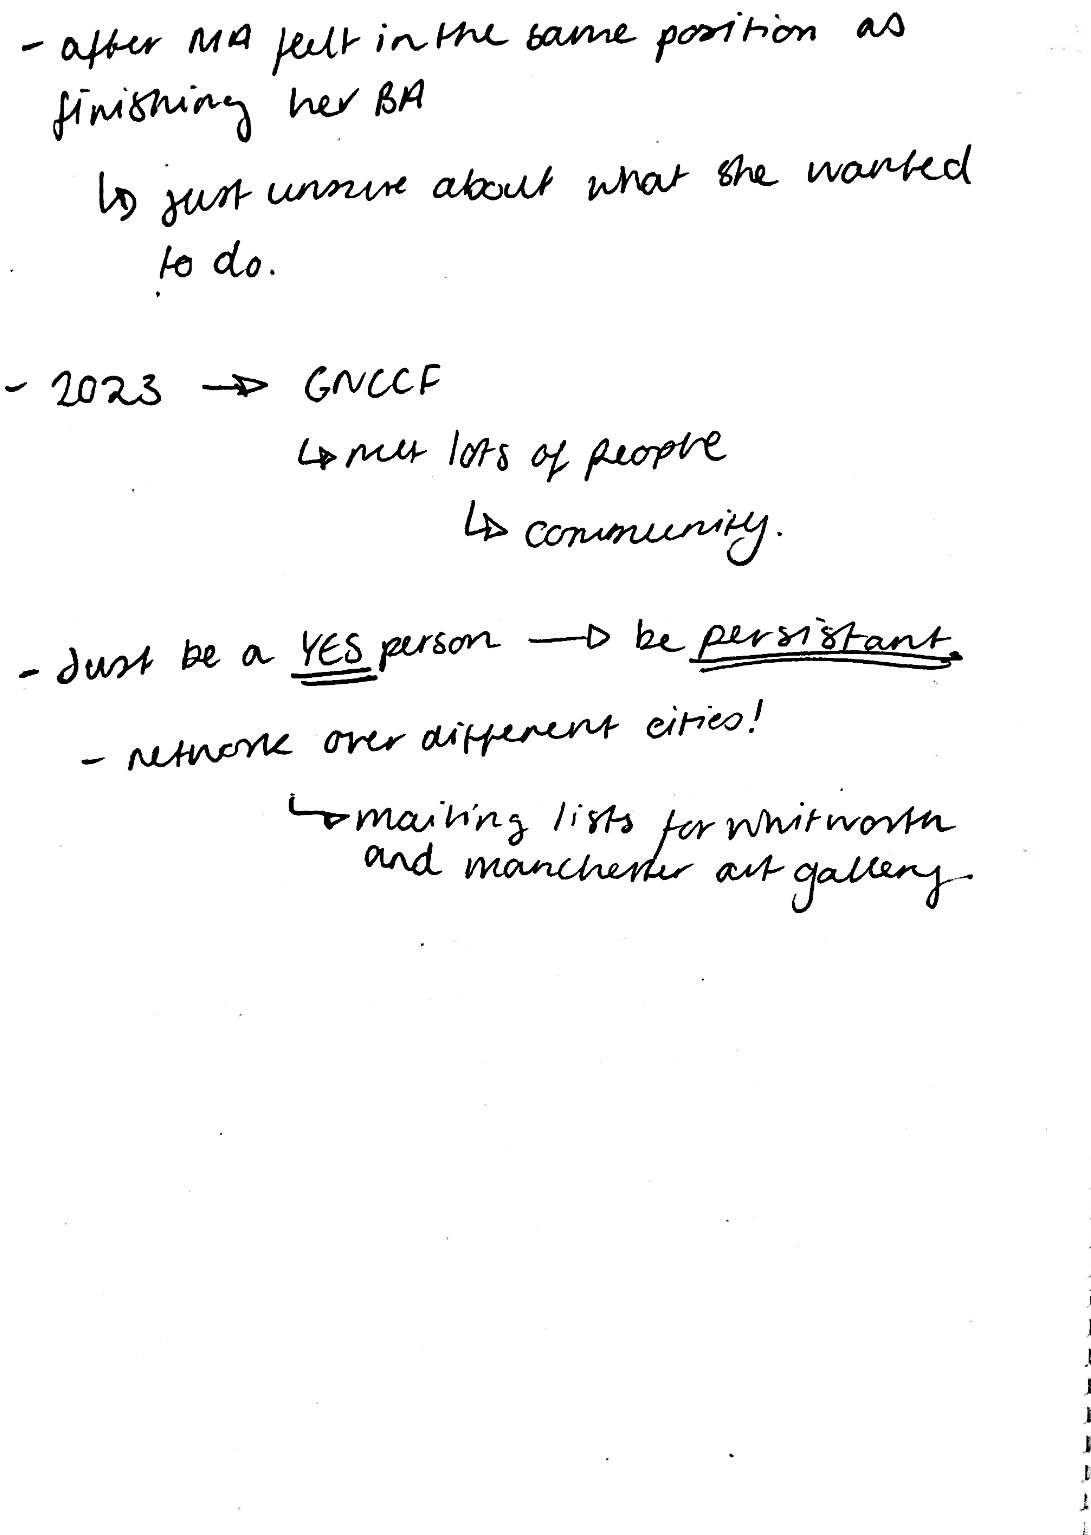 - after MA felt in the same position as
finishing her BA
↳ just unsure about what she wanted
to do.
- 2023 → GNCCF
↳ met lots of people
↳ community.
- Just be a YES person → be persistant.
- network over different cities!
↳ mailing lists for whitworth
and manchester art gallery.